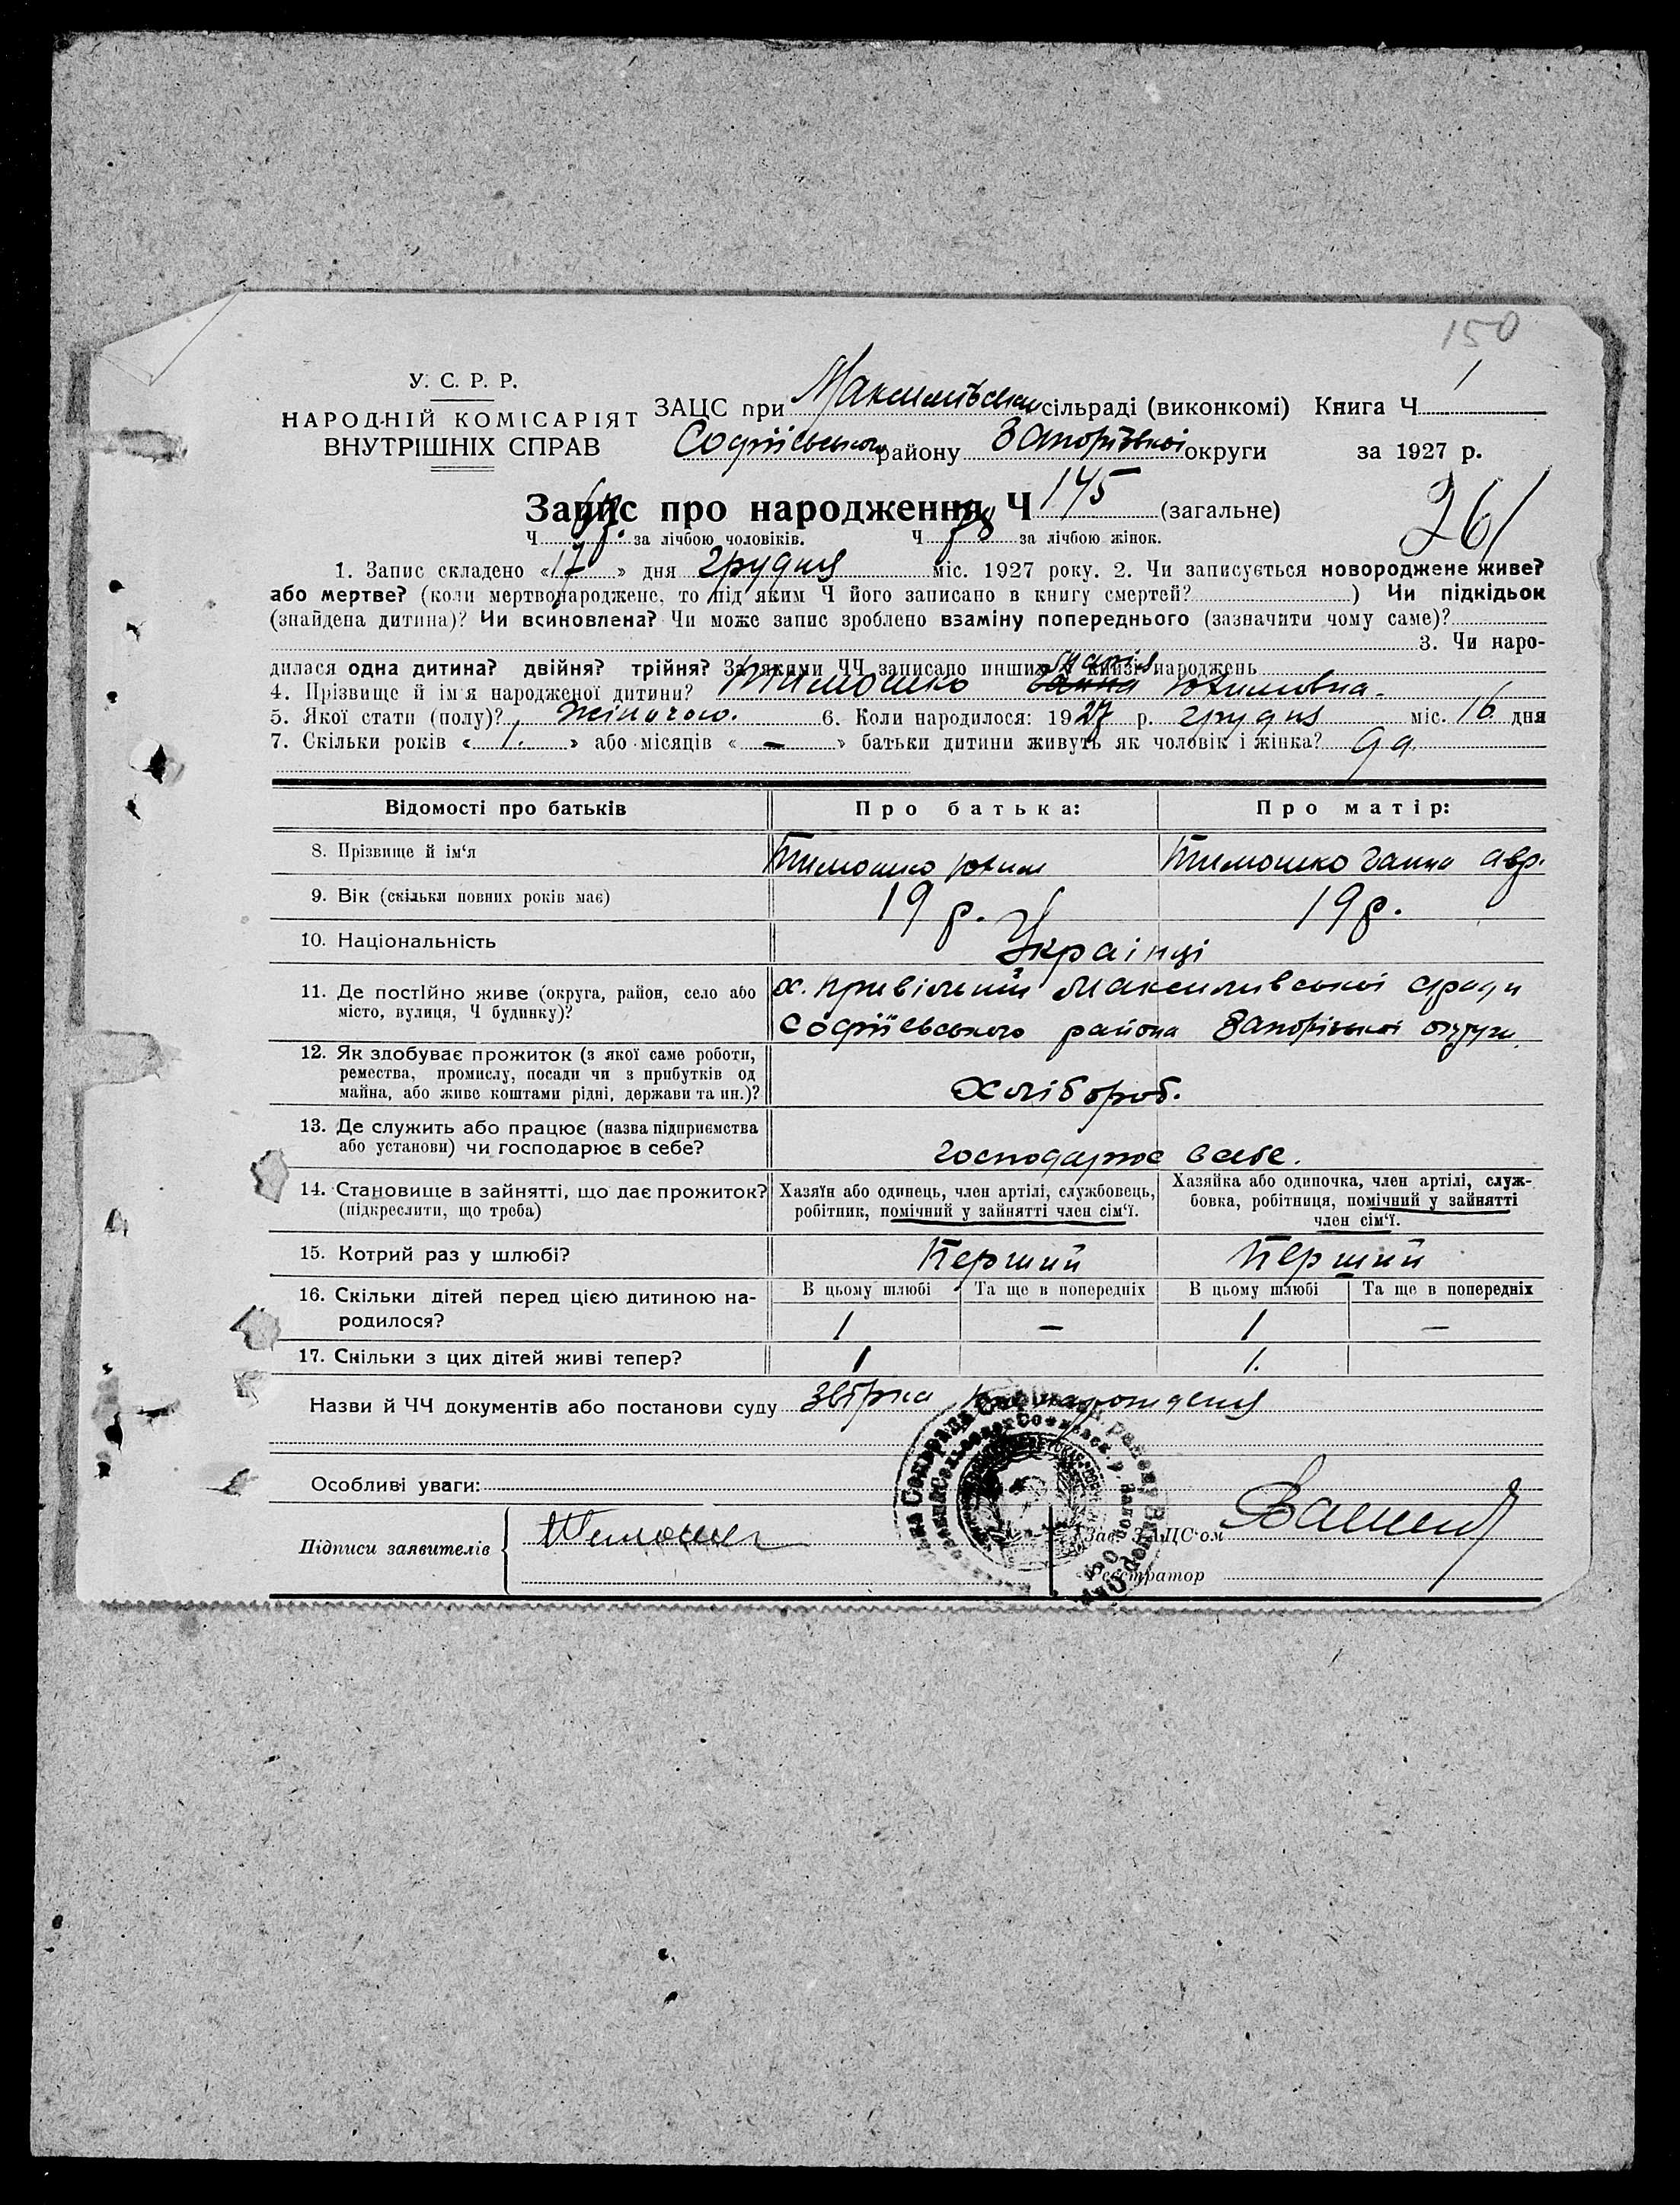 150
У. С. Р. Р.
НАРОДНІЙ КОМІСАРІЯТ
ВНУТРІШНІХ СПРАВ
ЗАЦС при сільраді (виконкомі) Книга Ч 1
Софіївського району Запорізької округи за 1927 р.
Запис про народження Ч 145 (загальне)
261
Ч за лічбою чоловіків. Ч за лічбою жінок.
1. Запис складено «17» дня грудня міс. 1927 року. 2. Чи записується новороджене живе?
або мертве? (коли мертвонароджене, то під яким Ч його записано в книгу смертей? ) Чи підкідьок
(знайдена дитина)? Чи всиновлена? Чи може запис зроблено взаміну попереднього (зазначити чому саме)?
3. Чи наро-
дилася одна дитина? двійня? трійня? За якими ЧЧ записано инших у книзі народжень
Марія
4. Прізвище й ім'я народженої дитини? Тимошко Ганна Юхимовна.
5. Якої стати (полу)? жіночою. 6. Коли народилося: 1927 р. грудня міс. 16 дня
7. Скільки років «1.» або місяців «—» батьки дитини живуть як чоловік і жінка? да.
Відомості про батьків Про батька: Про матір:
8. Прізвище й ім'я Тимошко Юхим Тимошко Ганна Авр.
9. Вік (скільки повних років має) 19 р. 19 р.
10. Національність Украінці
11. Де постійно живе (округа, район, село або х. Привільний Максимивської сради
місто, вулиця, Ч будинку)? Софіївського района Запорізької округи
12. Як здобуває прожиток (з якої саме роботи,
ремества, промислу, посади чи з прибутків од
майна, або живе коштами рідні, держави та ин.)? Хлібороб.
13. Де служить або працює (назва підприємства
або установи) чи господарює в себе? господарює в себе.
14. Становище в зайнятті, що дає прожиток? Хазяїн або одинець, член артілі, службовець, Хазяйка або одиночка, член артілі, служ-
(підкреслити, що треба) робітник, помічний у зайнятті член сім'ї. бовка, робітниця, помічний у зайнятті
член сім'ї.
15. Котрий раз у шлюбі? Перший Перший
16. Скільки дітей перед цією дитиною на- В цьому шлюбі Та ще в попередніх В цьому шлюбі Та ще в попередніх
родилося? 1 — 1 —
17. Скільки з цих дітей живі тепер? 1 1.
Назви й ЧЧ документів або постанови суду
Особливі уваги:
Підписи заявителів Зав. ЗАЦС'ом
Реєстратор